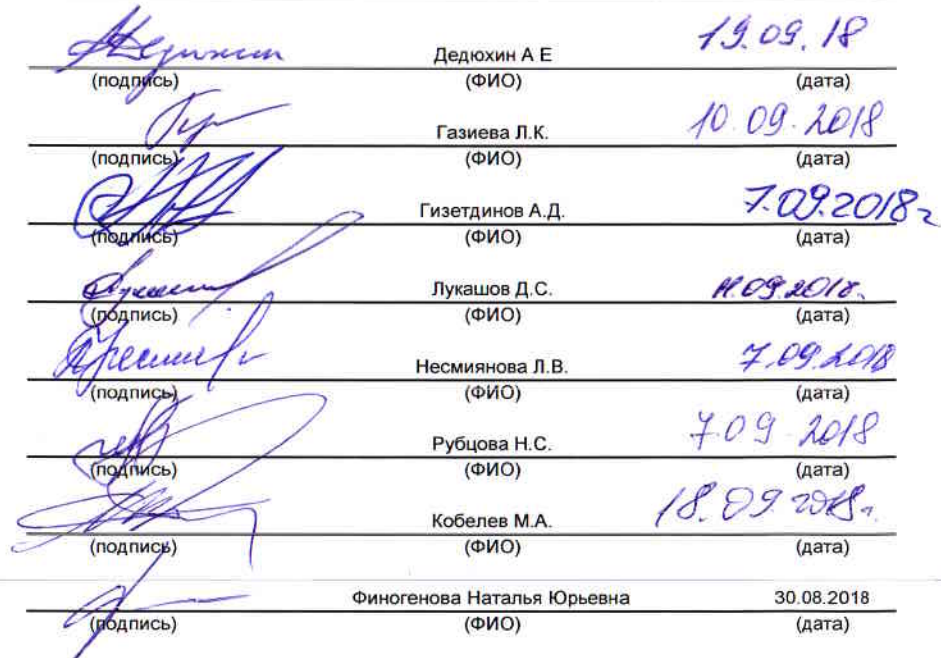 Дедюхин А Е 19.09.18
(подпись) (ФИО) (дата)
Газиева Л.К. 10.09.2018
(подпись) (ФИО) (дата)
Гизетдинов А.Д. 7.09.2018г
(подпись) (ФИО) (дата)
Лукашов Д.С.
(подпись) (ФИО) (дата)
Несмиянова Л.В. 7.09.2018
(подпись) (ФИО) (дата)
Рубцова Н.С. 7.09.2018
(подпись) (ФИО) (дата)
Кобелев М.А. 18.09.2018г.
(подпись) (ФИО) (дата)
Финогенова Наталья Юрьевна 30.08.2018
(подпись) (ФИО) (дата)